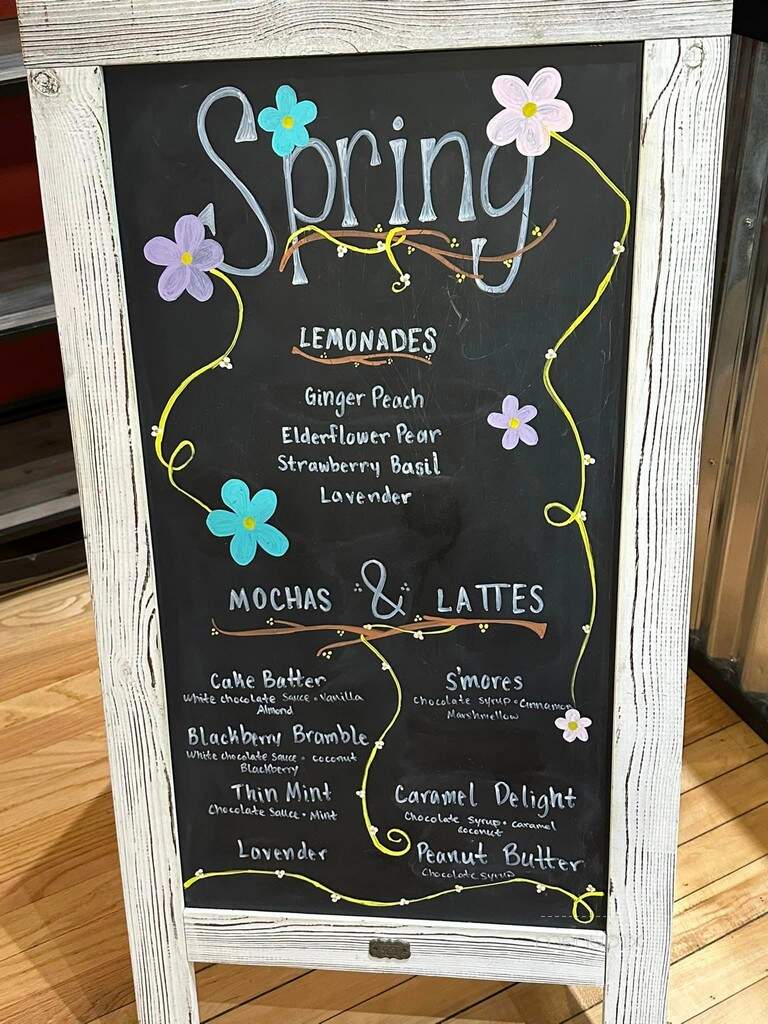 Spring
LEMONADES
Ginger Peach
Elderflower Pear
Strawberry Basil
Lavender
MOCHAS & LATTES
Cake Batter
White chocolate Sauce • Vanilla
Almond
Blackberry Bramble
White chocolate Sauce • coconut
Blackberry
Thin Mint
Chocolate Sauce • Mint
Lavender
S'mores
Chocolate Syrup • Cinnamon
Marshmellow
Caramel Delight
Chocolate Syrup • caramel
coconut
Peanut Butter
Chocolate Syrup